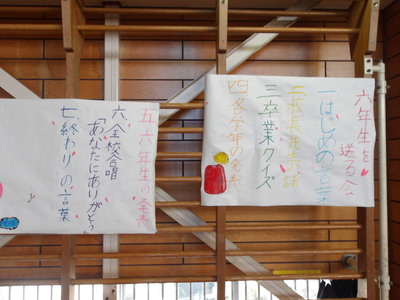 六年生を
送る会
一はじめの言葉
二校長先生の話
三卒業クイズ
四各学年の発表
五六年生の発表
六、全校合唱
「あなたにありがとう」
七、終わりの言葉